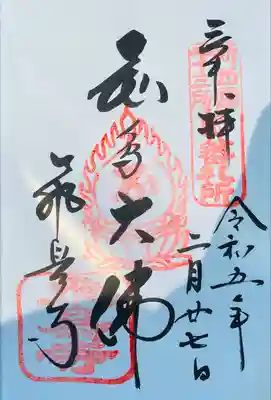 奉拝
令和五年
二月廿七日
飛鳥大佛
飛鳥寺